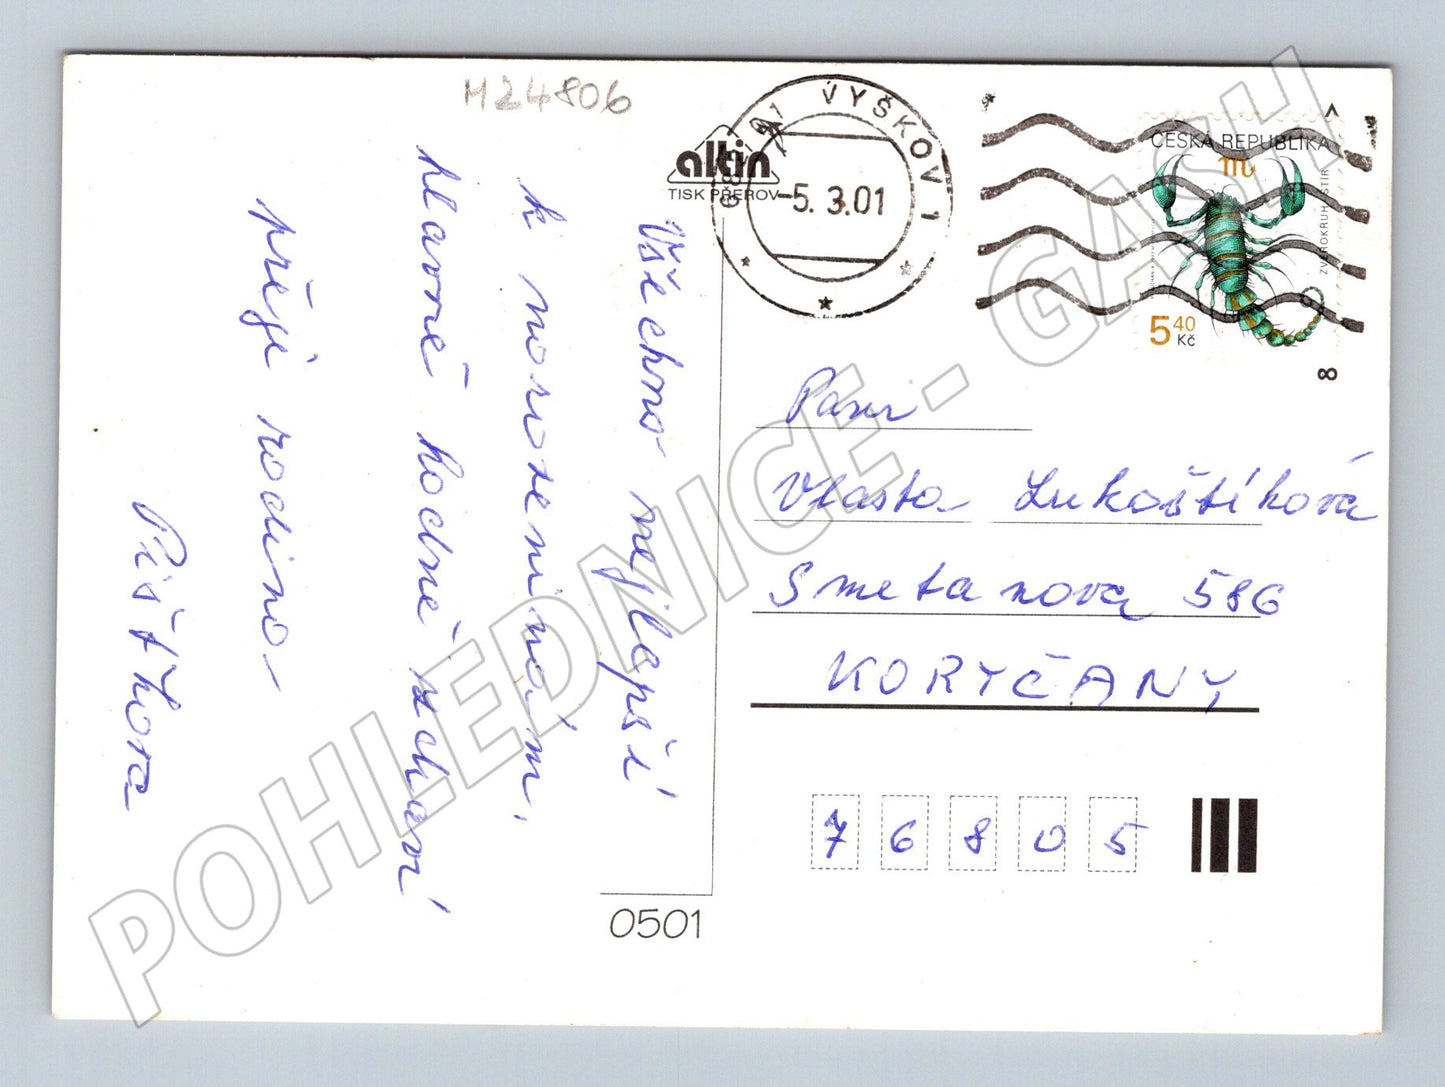 H24806
altin
TISK PŘEROV
VYŠKOV 1
-5. 3.01
ČESKA REPUBLIKA
ZVĚROKRUH
5 40 Kč
8
Všechno nejlepší
k narozeninám,
hlavně hodně zdraví
přeje rodina
Paní
Vlasta Lukoštíková
Smetanova 586
KORYČANY
76805
0501
POHLEDNICE - GASH